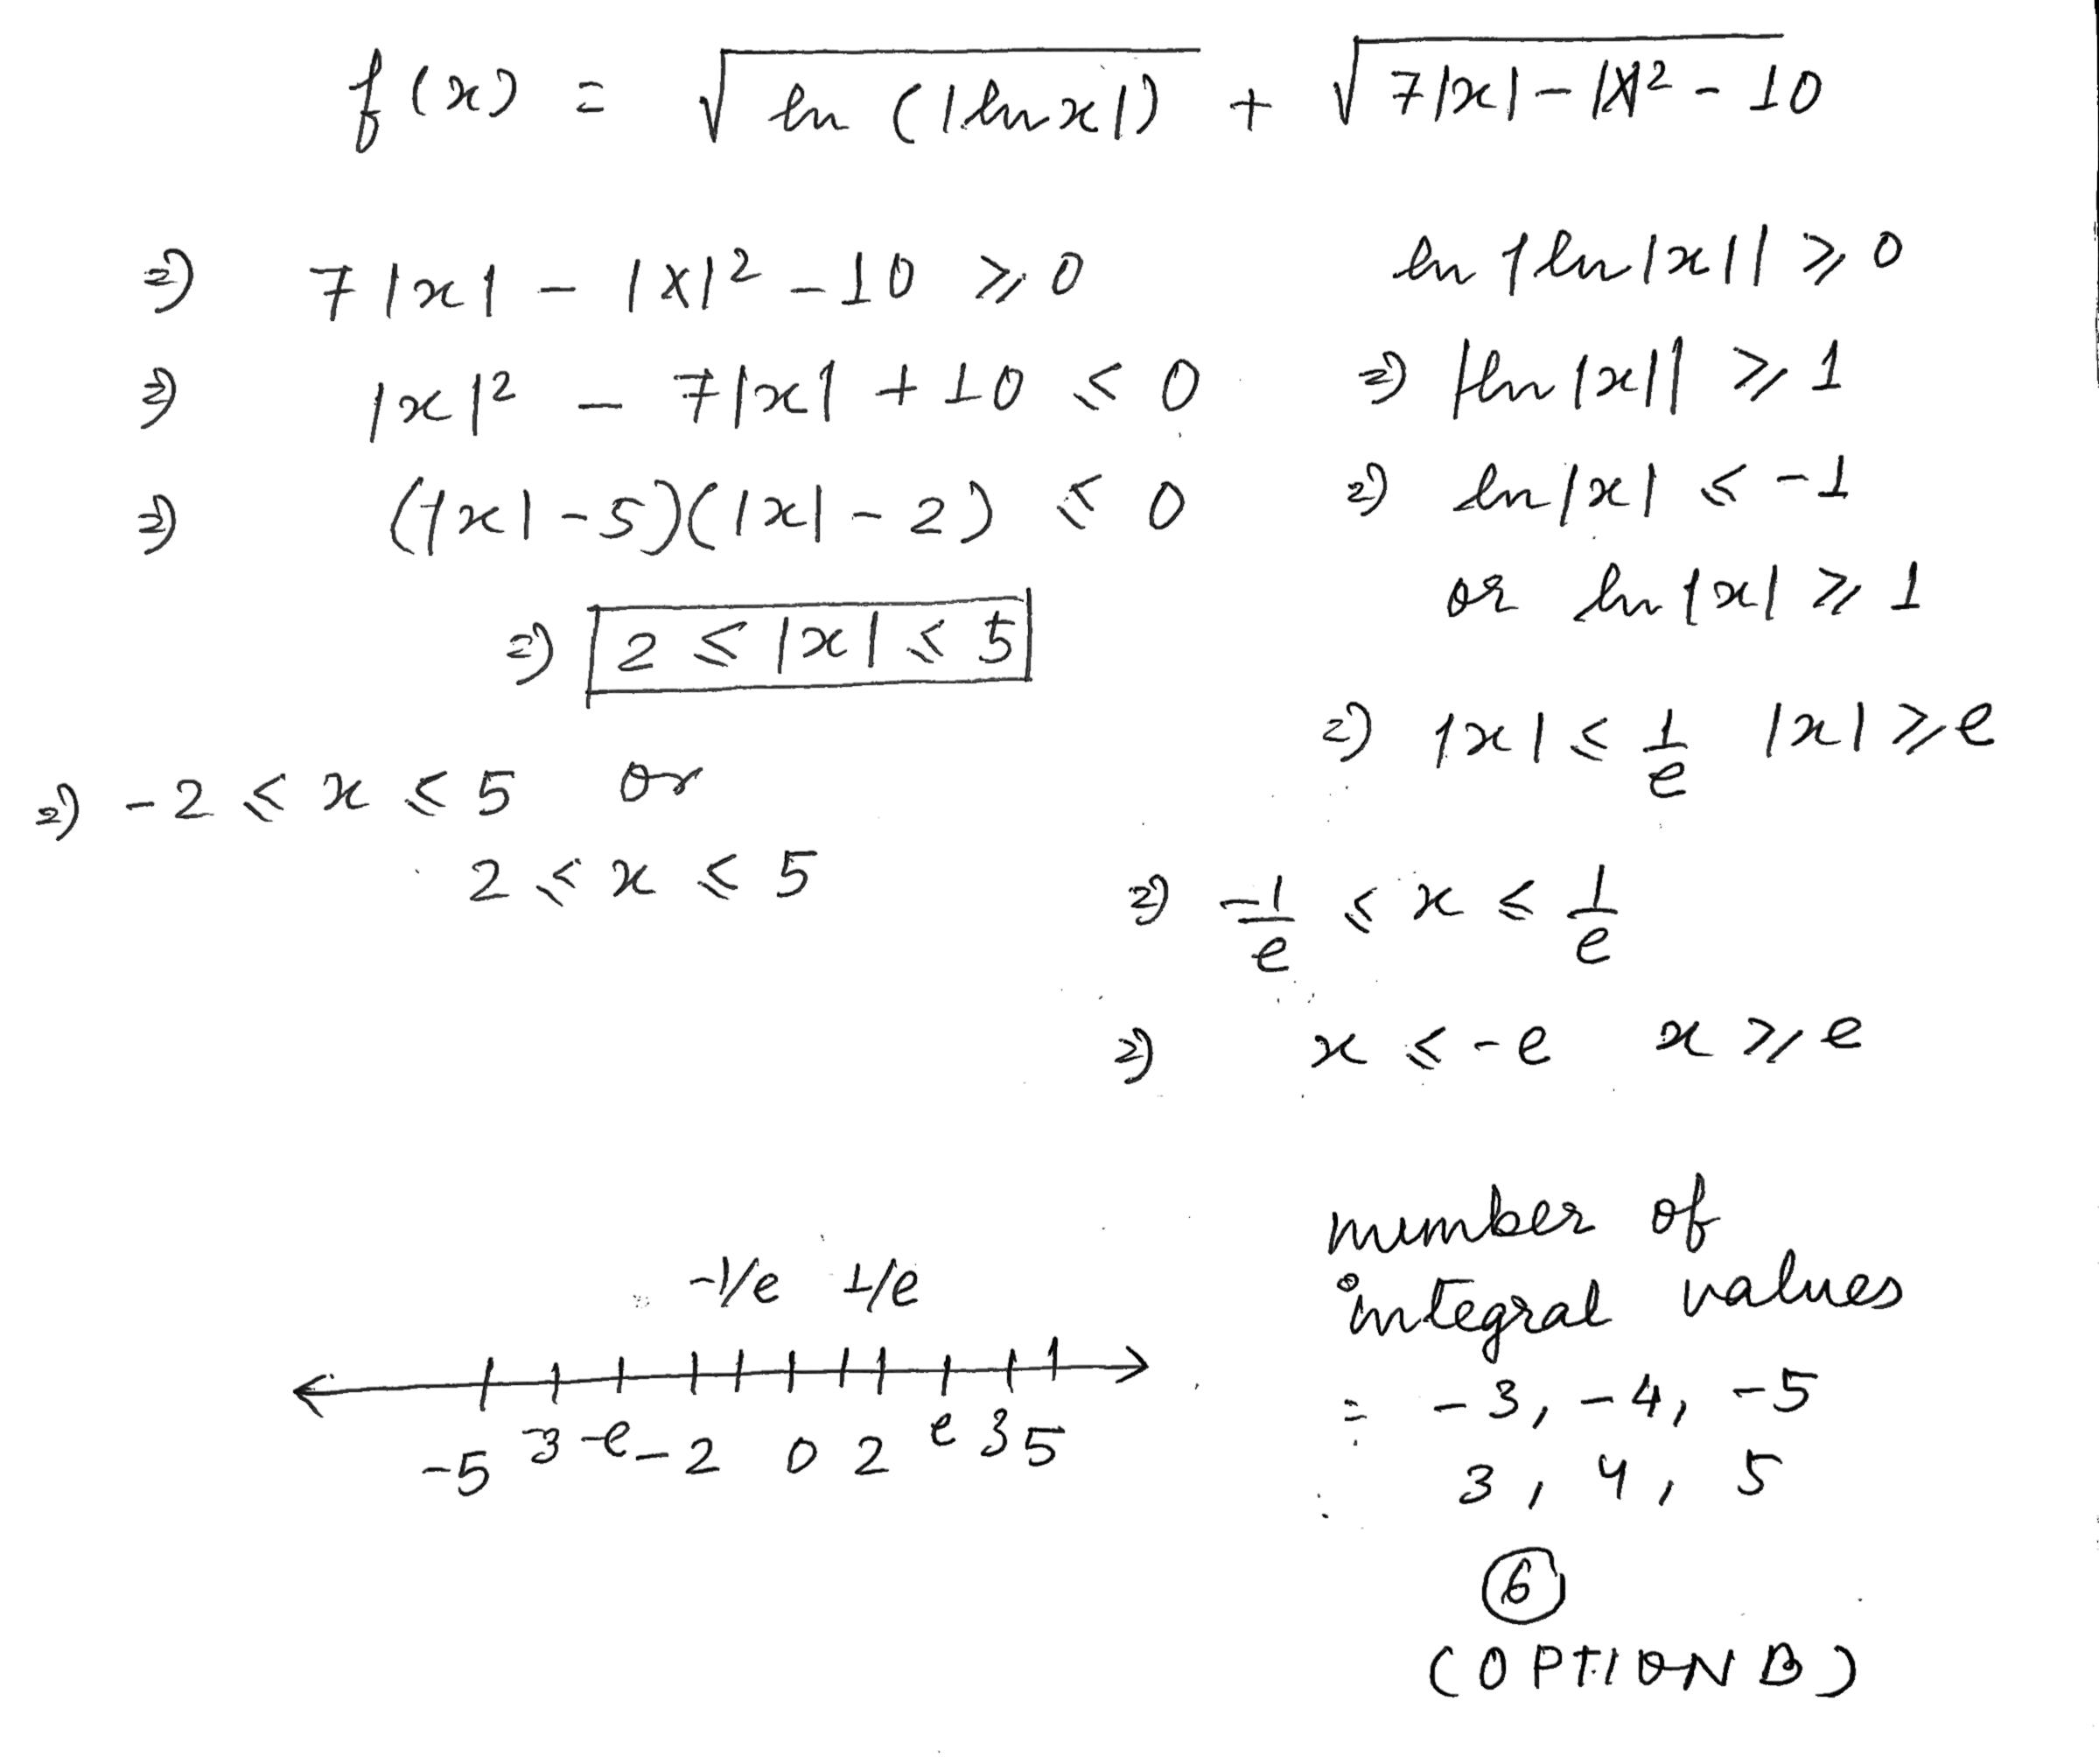 f(x) = √ln(|lnx|) + √7|x|-|x|²-10
⇒ 7|x| - |x|² - 10 ⩾ 0
⇒ |x|² - 7|x| + 10 ⩽ 0
⇒ (|x|-5)(|x|-2) ⩽ 0
⇒ 2 ⩽ |x| ⩽ 5
⇒ -2 ⩽ x ⩽ 5 or
2 ⩽ x ⩽ 5
ln |ln|x|| ⩾ 0
⇒ |ln|x|| ⩾ 1
⇒ ln|x| ⩽ -1
or ln|x| ⩾ 1
⇒ |x| ⩽ 1/e |x| ⩾ e
⇒ -1/e ⩽ x ⩽ 1/e
⇒ x ⩽ -e x ⩾ e
-1/e 1/e
-5 -3 -e -2 0 2 e 3 5
number of
integral values
= -3, -4, -5
3, 4, 5
6
(OPTION B)